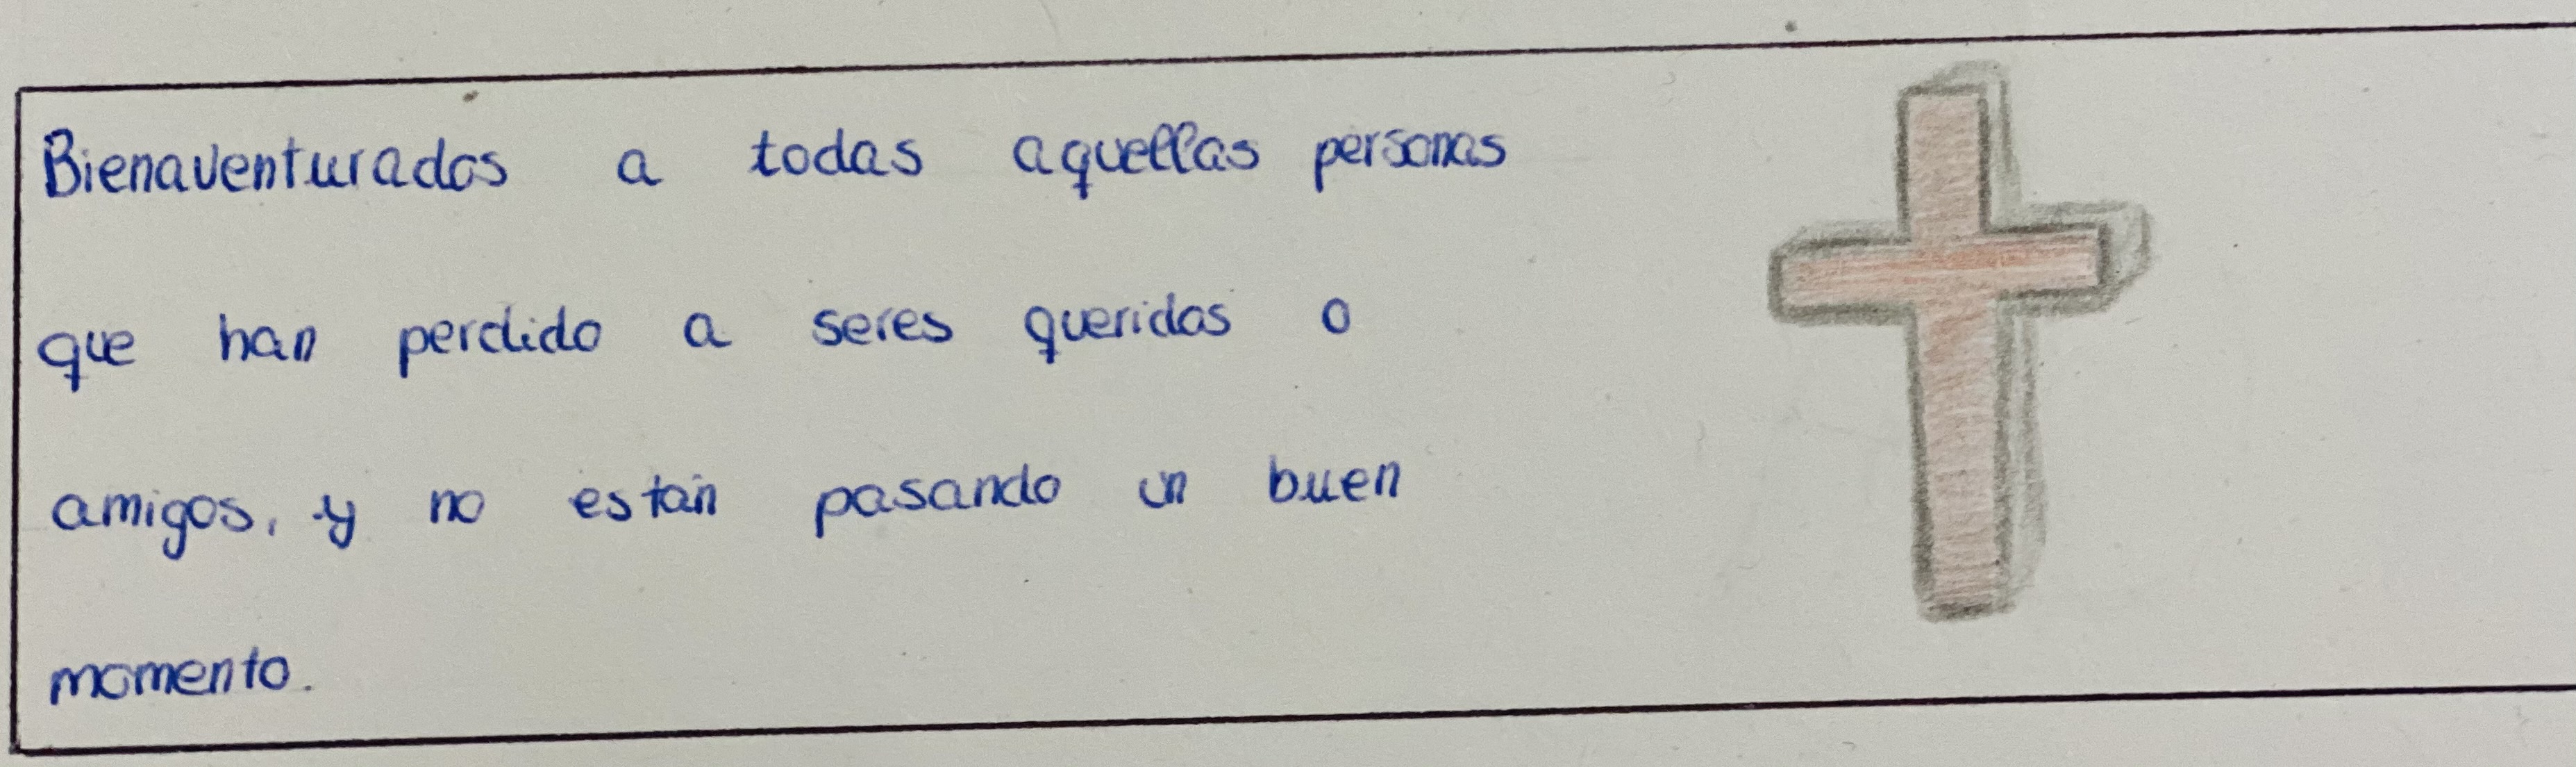 Bienaventurados a todas aquellas personas
que han perdido a seres queridos o
amigos, y no están pasando un buen
momento.